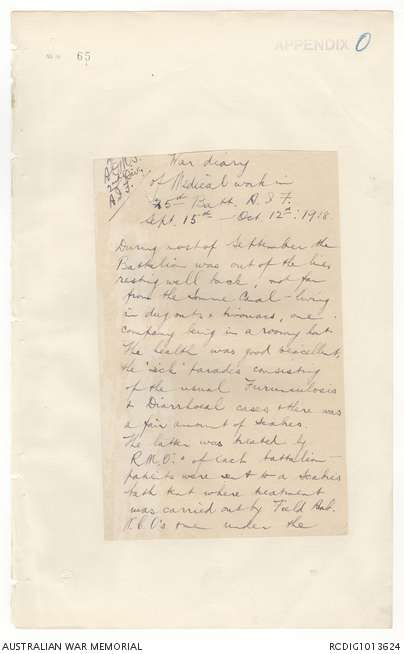 APPENDIX O
65
A.D.M.S.
2nd Div.
A.I.F.
War diary
of Medical work in
25th Batt. A.I.F.
Sept. 15th – Oct. 12th: 1918.
During most of September the
Battalion was out of the line
resting well back, not far
from the Somme Canal – living
in dug outs & bivouacs, one
company being in a roomy hut.
The health was good & excellent,
the "sick" parades consisting
of the usual Furunculosis
& Diarrhoeal cases & there was
a fair amount of Scabies.
The latter was treated by
R.M.O.s of each battalion –
patients were sent to a Scabies
bath tent where treatment
was carried out by Field Amb.
N.C.O's one under the
AUSTRALIAN WAR MEMORIAL
RCDIG1013624